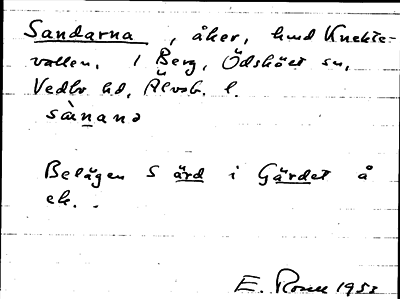 Sandarna, åker, hmd Knekte-
vallen, 1 Berg, Ödsköлt sn,
Vedbo hd, Älvsb. l.
sànanə
Belägen S ärd i Gärdet å
ek..
E. Rosell 1953